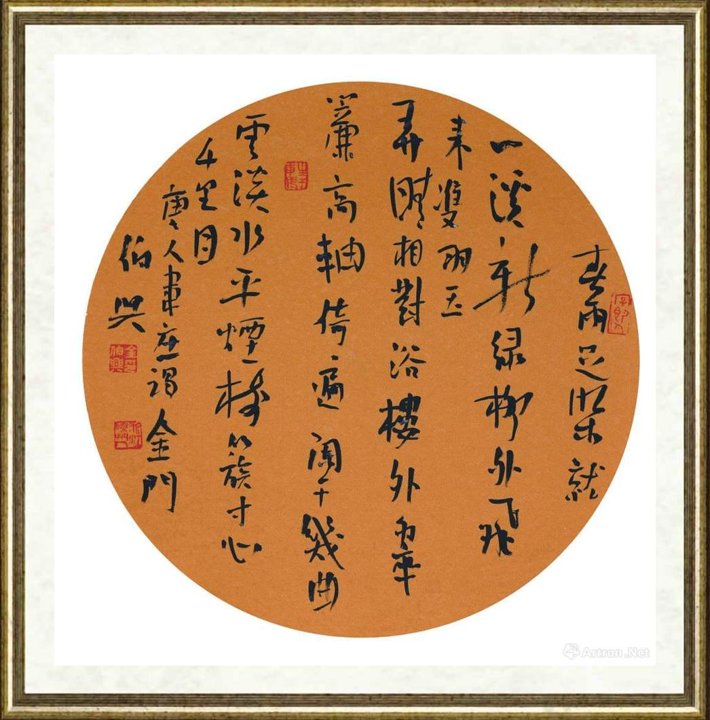 春雨足染就
一溪新绿柳外飛
来雙羽玉
弄晴相對浴樓外翠
簾高軸倚遍闌干幾曲
雲淡水平煙樹簇寸心
千里目
唐人韋庄謁金門
伯興
Artron.Net